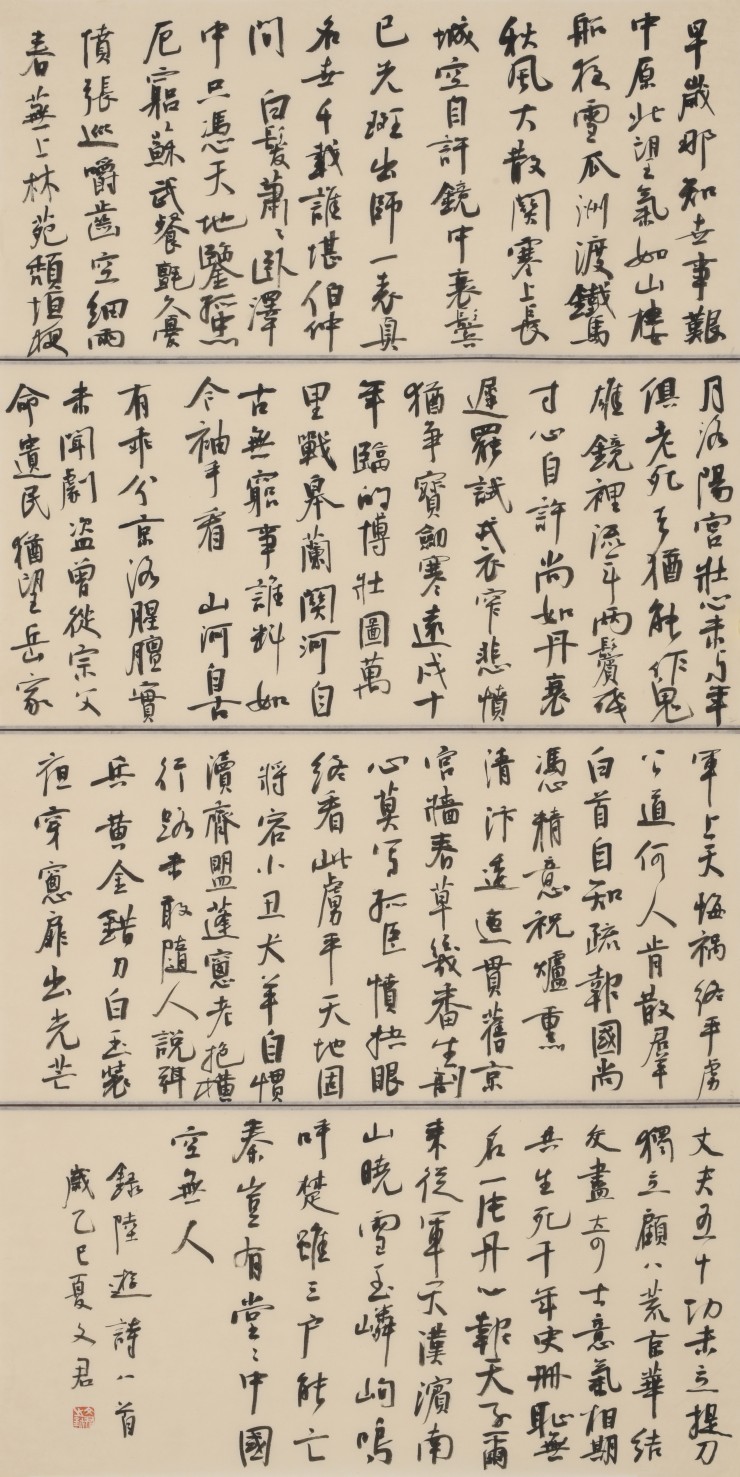 早歲那知世事艱
中原北望氣如山樓
船夜雪瓜洲渡鐵馬
秋風大散關塞上長
城空自許鏡中衰鬢
已先斑出師一表真
名世千載誰堪伯仲
間 白髮蕭〻臥澤
中只憑天地鑒孤忠
厄窮蘇武餐氈久憂
憤張巡嚼齒空細雨
春蕪上林苑頹垣夜
月洛陽宮壯心未與年
俱老死去猶能作鬼
雄鏡裡流年兩鬢殘
寸心自許尚如丹衰
遲罷試戎衣窄悲憤
猶爭寶劍寒遠戍十
年臨的博壯圖萬
里戰皋蘭關河自
古無窮事誰料如
今袖手看 山河自古
有乖分京洛腥膻實
未聞劇盜曾從宗父
命遺民猶望岳家
軍上天悔禍終平虜
公道何人肯散群
白首自知疏報國尚
憑精意祝爐熏
清汴逶迤貫舊京
宮牆春草幾番生剖
心莫寫孤臣憤抉眼
終看此虜平天地固
將容小丑犬羊自慣
瀆齊盟蓬窗老抱橫
行路未敢隨人說弭
兵黃金錯刀白玉裝
夜穿窗扉出光芒
丈夫五十功未立提刀
獨立顧八荒京華結
交盡奇士意氣相期
共生死千年史冊恥無
名一片丹心報天子爾
來從軍天漢濱南
山曉雪玉嶙峋嗚
呼楚雖三戶能亡
秦豈有堂〻中國
空無人
錄陸遊詩八首
歲乙巳夏文君